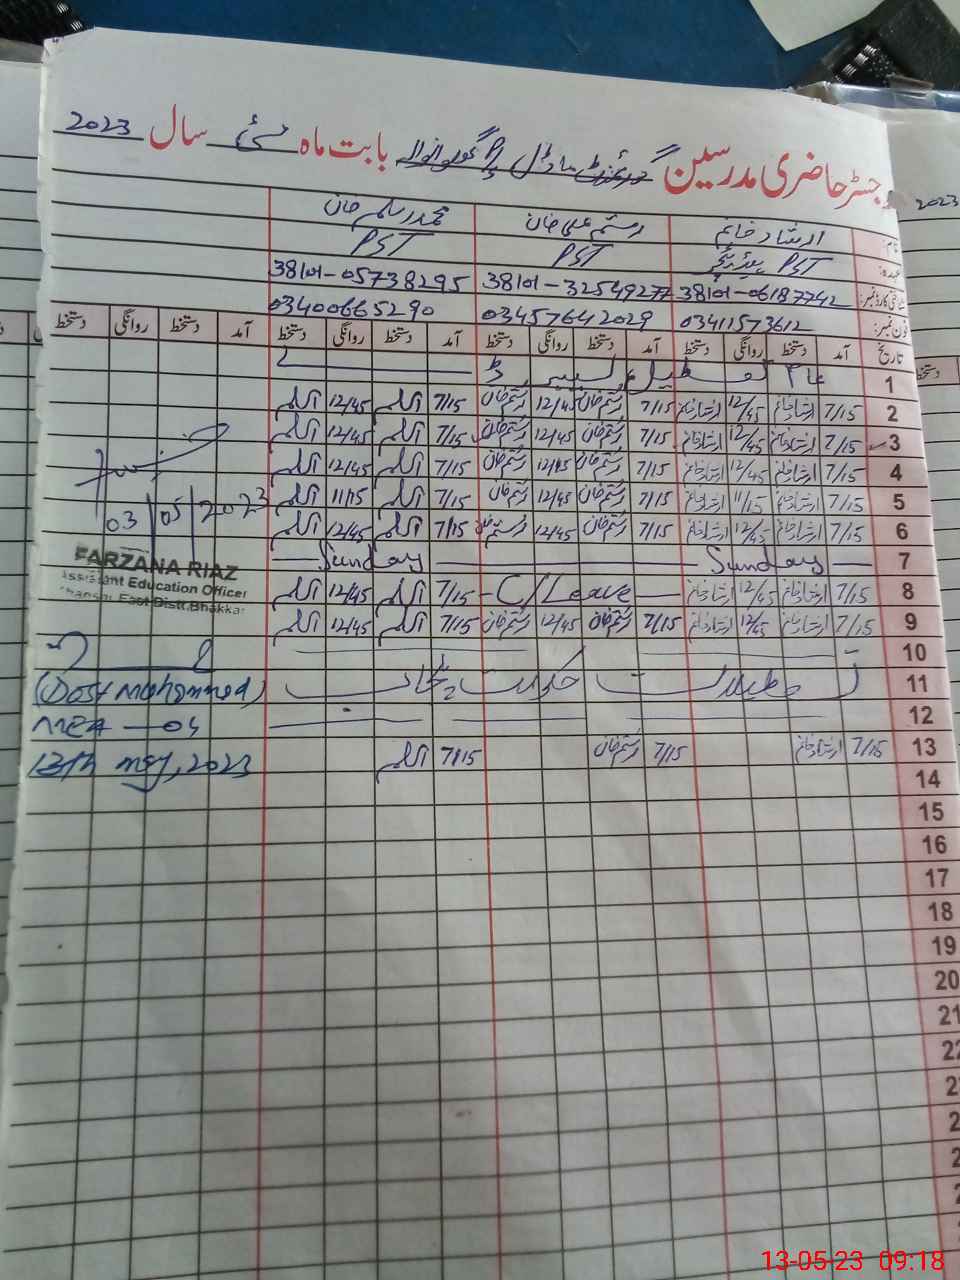 رجسٹر حاضری مدرسین گورنمنٹ ماڈل بابت ماہ مئی سال 2023
نام: ارشاد خانم رستم علی خان محمد اسلم خان
عہدہ: PST PST PST
شناختی کارڈ نمبر: 38101-06187742 38101-32549277 38101-05738295
فون نمبر: 03411573612 03457642029 03400665290
تاریخ آمد دستخط روانگی دستخط آمد دستخط روانگی دستخط آمد دستخط روانگی دستخط آمد دستخط روانگی دستخط
1 عام تعطیل لیبر ڈے
2 7/15 ارشاد خانم 12/45 ارشاد خانم 7/15 رستم خان 12/45 رستم خان 7/15 اسلم 12/45 اسلم
3 7/15 ارشاد خانم 12/45 ارشاد خانم 7/15 رستم خان 12/45 رستم خان 7/15 اسلم 12/45 اسلم
4 7/15 ارشاد خانم 12/45 ارشاد خانم 7/15 رستم خان 12/45 رستم خان 7/15 اسلم 12/45 اسلم
5 7/15 ارشاد خانم 11/15 ارشاد خانم 7/15 رستم خان 12/45 رستم خان 7/15 اسلم 11/15 اسلم
03/05/2023
6 7/15 ارشاد خانم 12/45 ارشاد خانم 7/15 رستم خان 12/45 رستم خان 7/15 اسلم 12/45 اسلم
7 Sunday Sunday
FARZANA RIAZ
Assistant Education Officer
East Distt. Bhakkar
8 7/15 ارشاد خانم 12/45 ارشاد خانم C/Leave 7/15 اسلم 12/45 اسلم
9 7/15 ارشاد خانم 12/45 ارشاد خانم 7/15 رستم خان 12/45 رستم خان 7/15 اسلم 12/45 اسلم
10
11 تعطیلات حکومت پنجاب
(Dost Mohammad)
12
MEA - 04
13 7/15 ارشاد خانم 7/15 رستم خان 7/15 اسلم
13th may, 2023
14
15
16
17
18
19
20
21
22
13-05-23 09:18